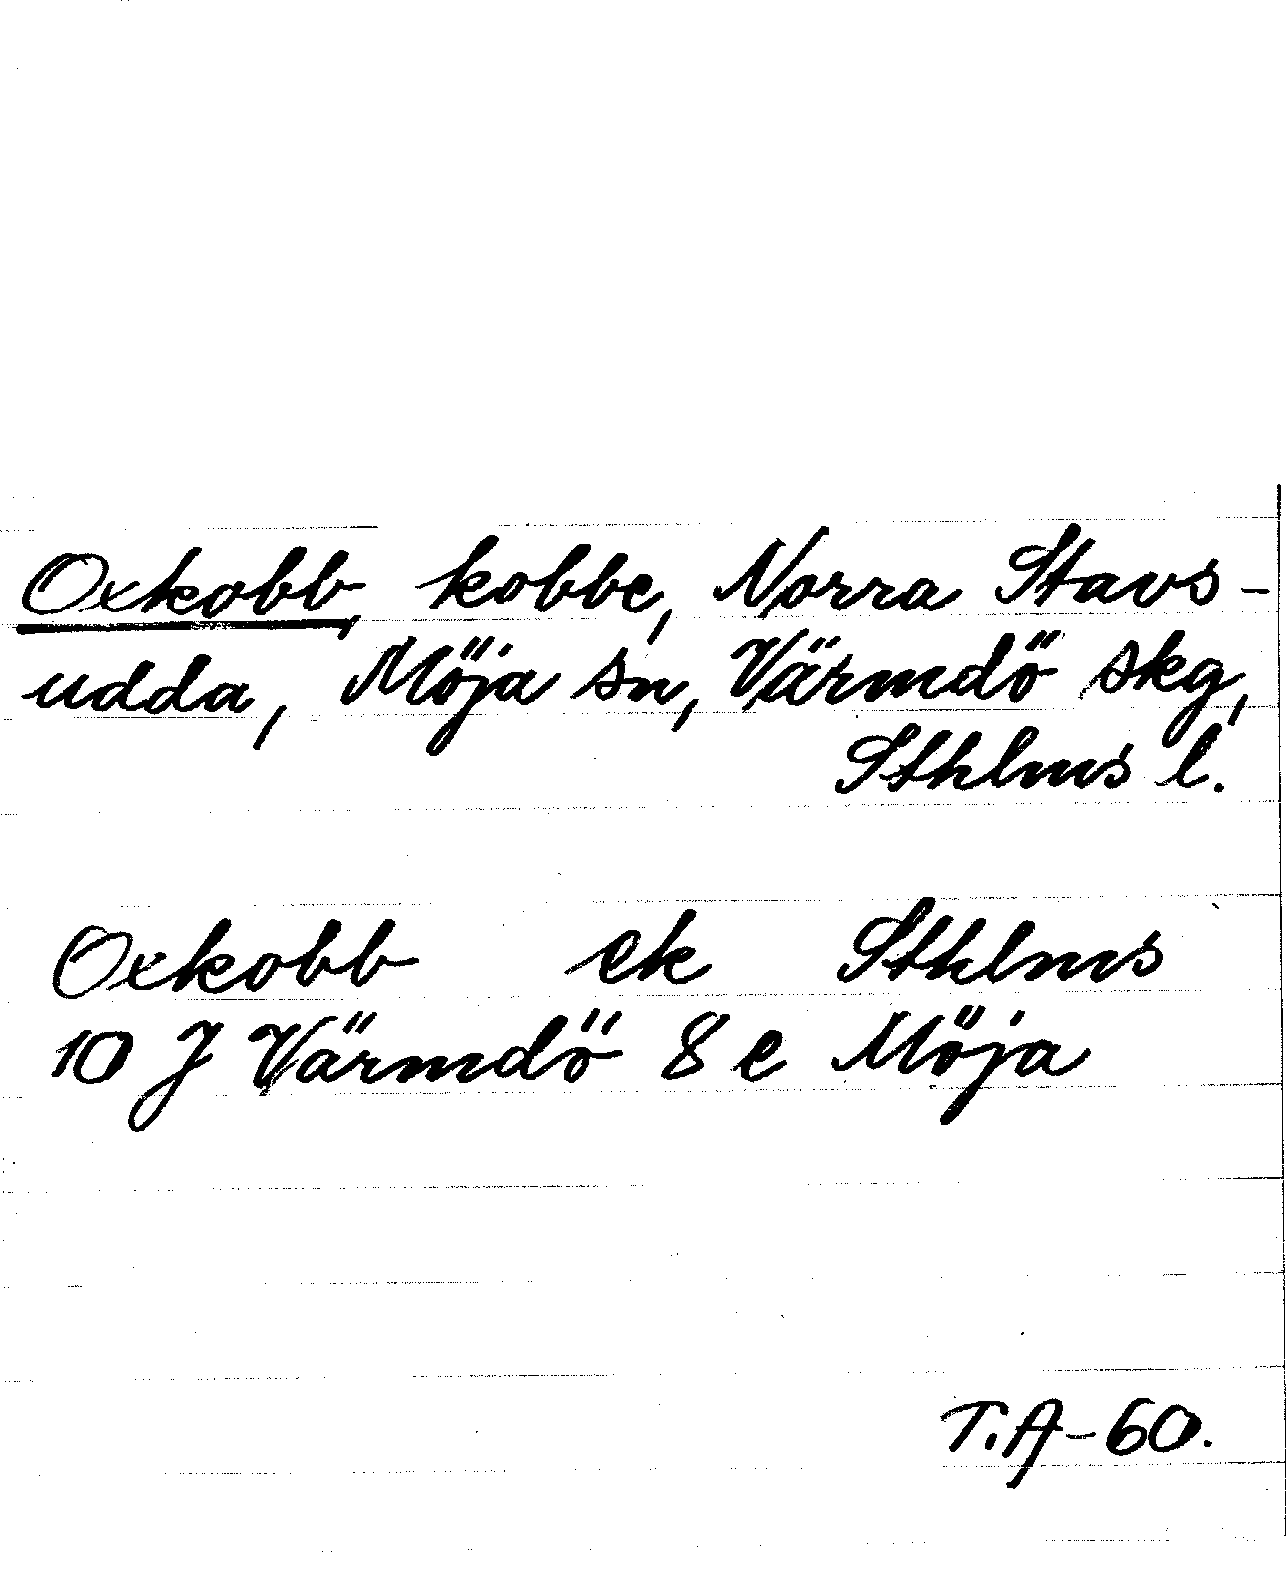 Oxkobb, kobbe, Norra Stavs-
udda, Möja sn, Värmdö skg,
Sthlms l.
Oxkobb ek Sthlms
10 J Värmdö 8 e Möja
T.A-60.